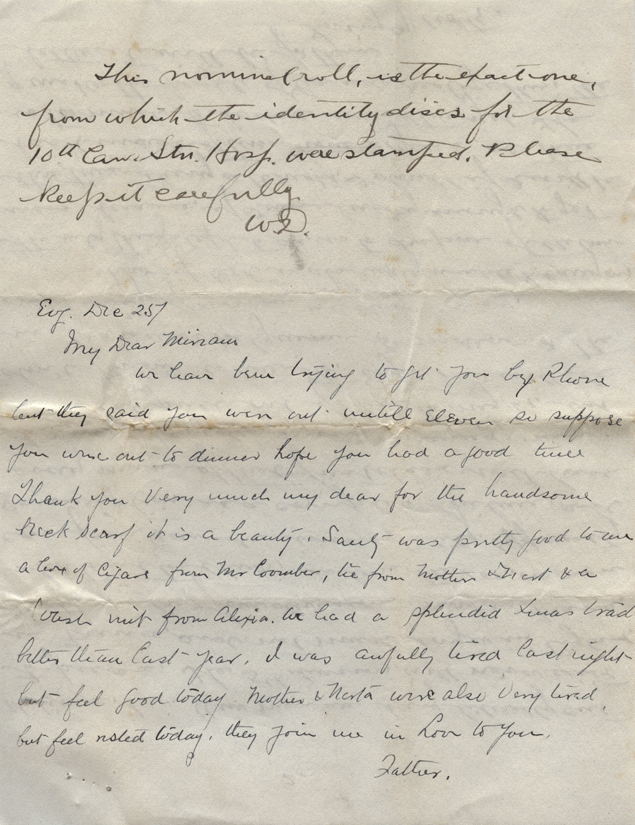 This nominal roll, is the exact one,
from which the identity discs for the
10th Can. Stn. Hosp. were stamped. Please
keep it carefully
W.S.
Evg. Dec 25/
My Dear Miriam
we have been trying to get you by Phone
but they said you were out untill Eleven so suppose
you were out to dinner hope you had a good time
Thank you Very much my dear for the handsome
Neck Scarf it is a beauty. Santy was pretty good to me
a box of Cigars from Mr Coomber, tie from Mother & a
Wash mit from Alexia. We had a splendid Xmas trad
better than Last year. I was awfully tired Last night
but feel good today Mother & were also Very tired,
but feel rested today. they join me in Love to You.
Father.